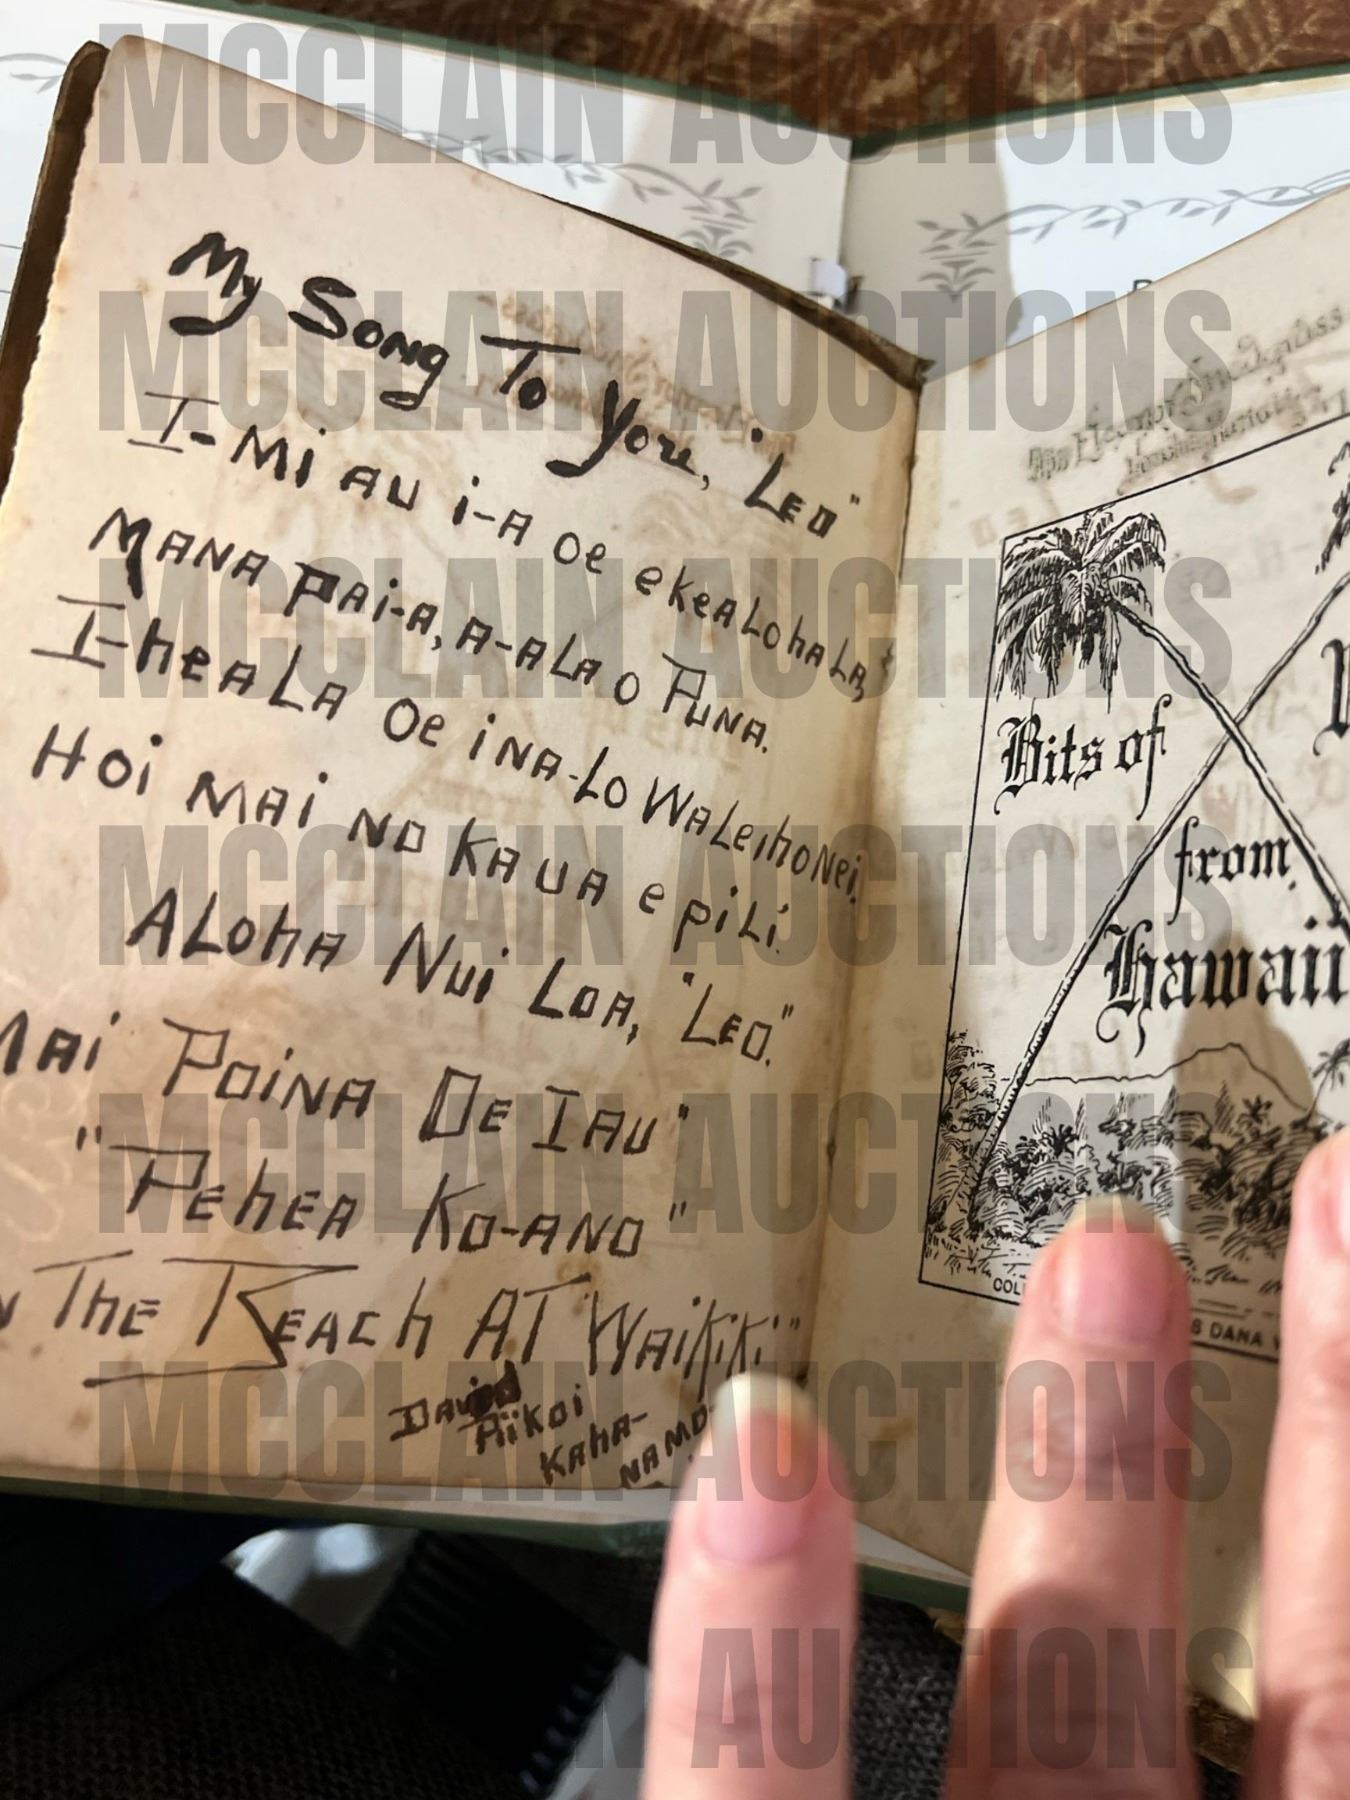 My Song To You, "Leo"
I-Mi au i-a oe ekeaLohaLa,
Mana pai-a, a-aLa o Puna.
I-heaLa Oe ina-Lo WaLeihoNei.
Hoi mai no Kaua e piLi.
ALoha Nui Loa, "Leo."
Mai Poina Oe Iau"
"Pehea Ko-ano"
The Beach At Waikiki"
David
Piikoi
Kaha-
Bits of
from
Hawaii
MCCLAIN AUCTIONS
MCCLAIN AUCTIONS
MCCLAIN AUCTIONS
MCCLAIN AUCTIONS
MCCLAIN AUCTIONS
MCCLAIN AUCTIONS
AUCTIONS